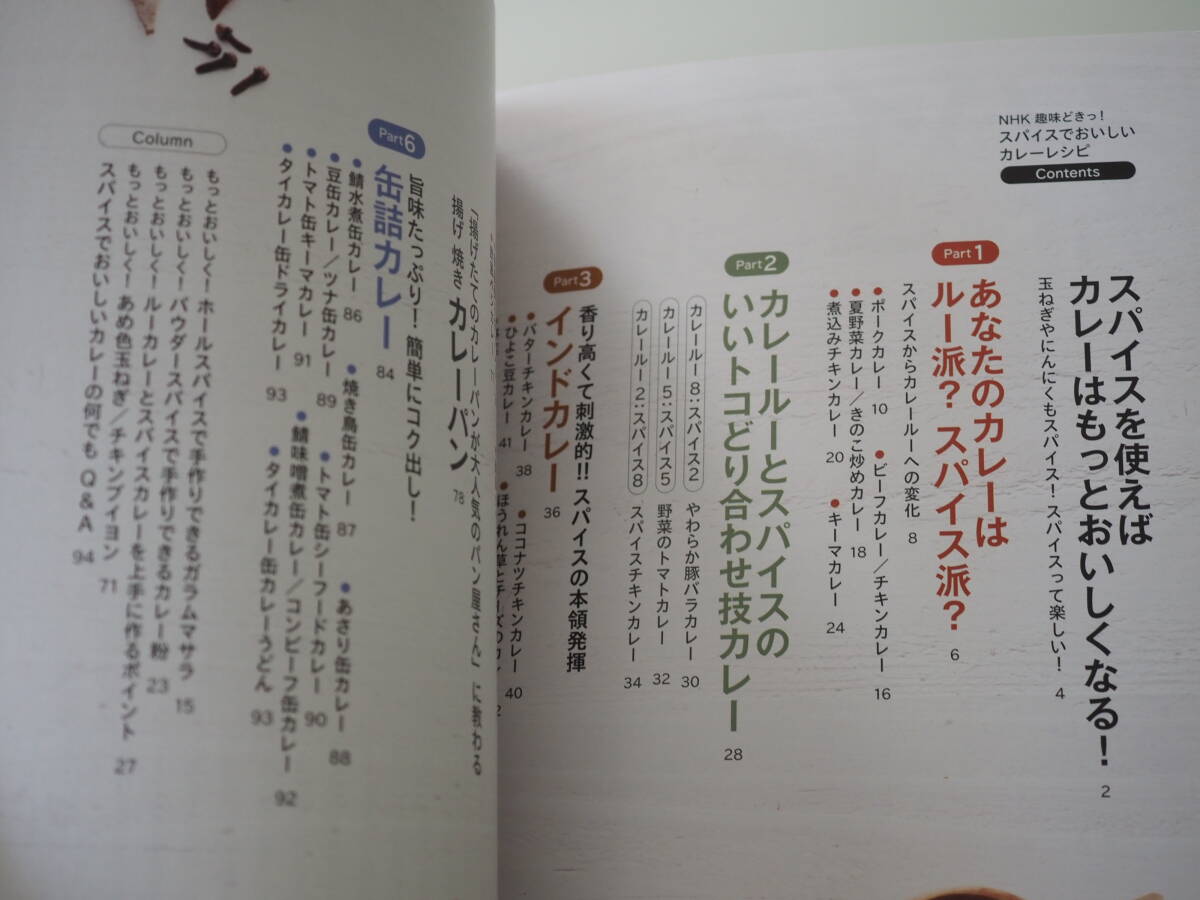 NHK 趣味どきっ！
スパイスでおいしい
カレーレシピ
Contents
スパイスを使えば
カレーはもっとおいしくなる！ 2
玉ねぎやにんにくもスパイス！スパイスって楽しい！ 4
Part1
あなたのカレーは
ルー派？ スパイス派？ 6
スパイスからカレールーへの変化 8
●ポークカレー 10
●ビーフカレー／チキンカレー 16
●夏野菜カレー／きのこ炒めカレー 18
●煮込みチキンカレー 20
●キーマカレー 24
Part2
カレールーとスパイスの
いいトコどり合わせ技カレー 28
カレールー8：スパイス2 やわらか豚バラカレー 30
カレールー5：スパイス5 野菜のトマトカレー 32
カレールー2：スパイス8 スパイスチキンカレー 34
Part3
香り高くて刺激的!! スパイスの本領発揮
インドカレー 36
●バターチキンカレー 38
●ココナツチキンカレー 40
●ひよこ豆カレー 41
●ほうれん草とチーズのカレ
「揚げたてのカレーパンが大人気のパン屋さん」に教わる
揚げ 焼き カレーパン 78
Part6
旨味たっぷり！ 簡単にコク出し！
缶詰カレー 84
●鯖水煮缶カレー 86
●焼き鳥缶カレー 87
●あさり缶カレー 88
●豆缶カレー／ツナ缶カレー 89
●トマト缶シーフードカレー 90
●トマト缶キーマカレー 91
●鯖味噌煮缶カレー／コンビーフ缶カレー 92
●タイカレー缶ドライカレー 93
●タイカレー缶カレーうどん 93
Column
もっとおいしく！ ホールスパイスで手作りできるガラムマサラ 15
もっとおいしく！ パウダースパイスで手作りできるカレー粉 23
もっとおいしく！ ルーカレーとスパイスカレーを上手に作るポイント 27
もっとおいしく！ あめ色玉ねぎ／チキンブイヨン 71
スパイスでおいしいカレーの何でも Q＆A 94